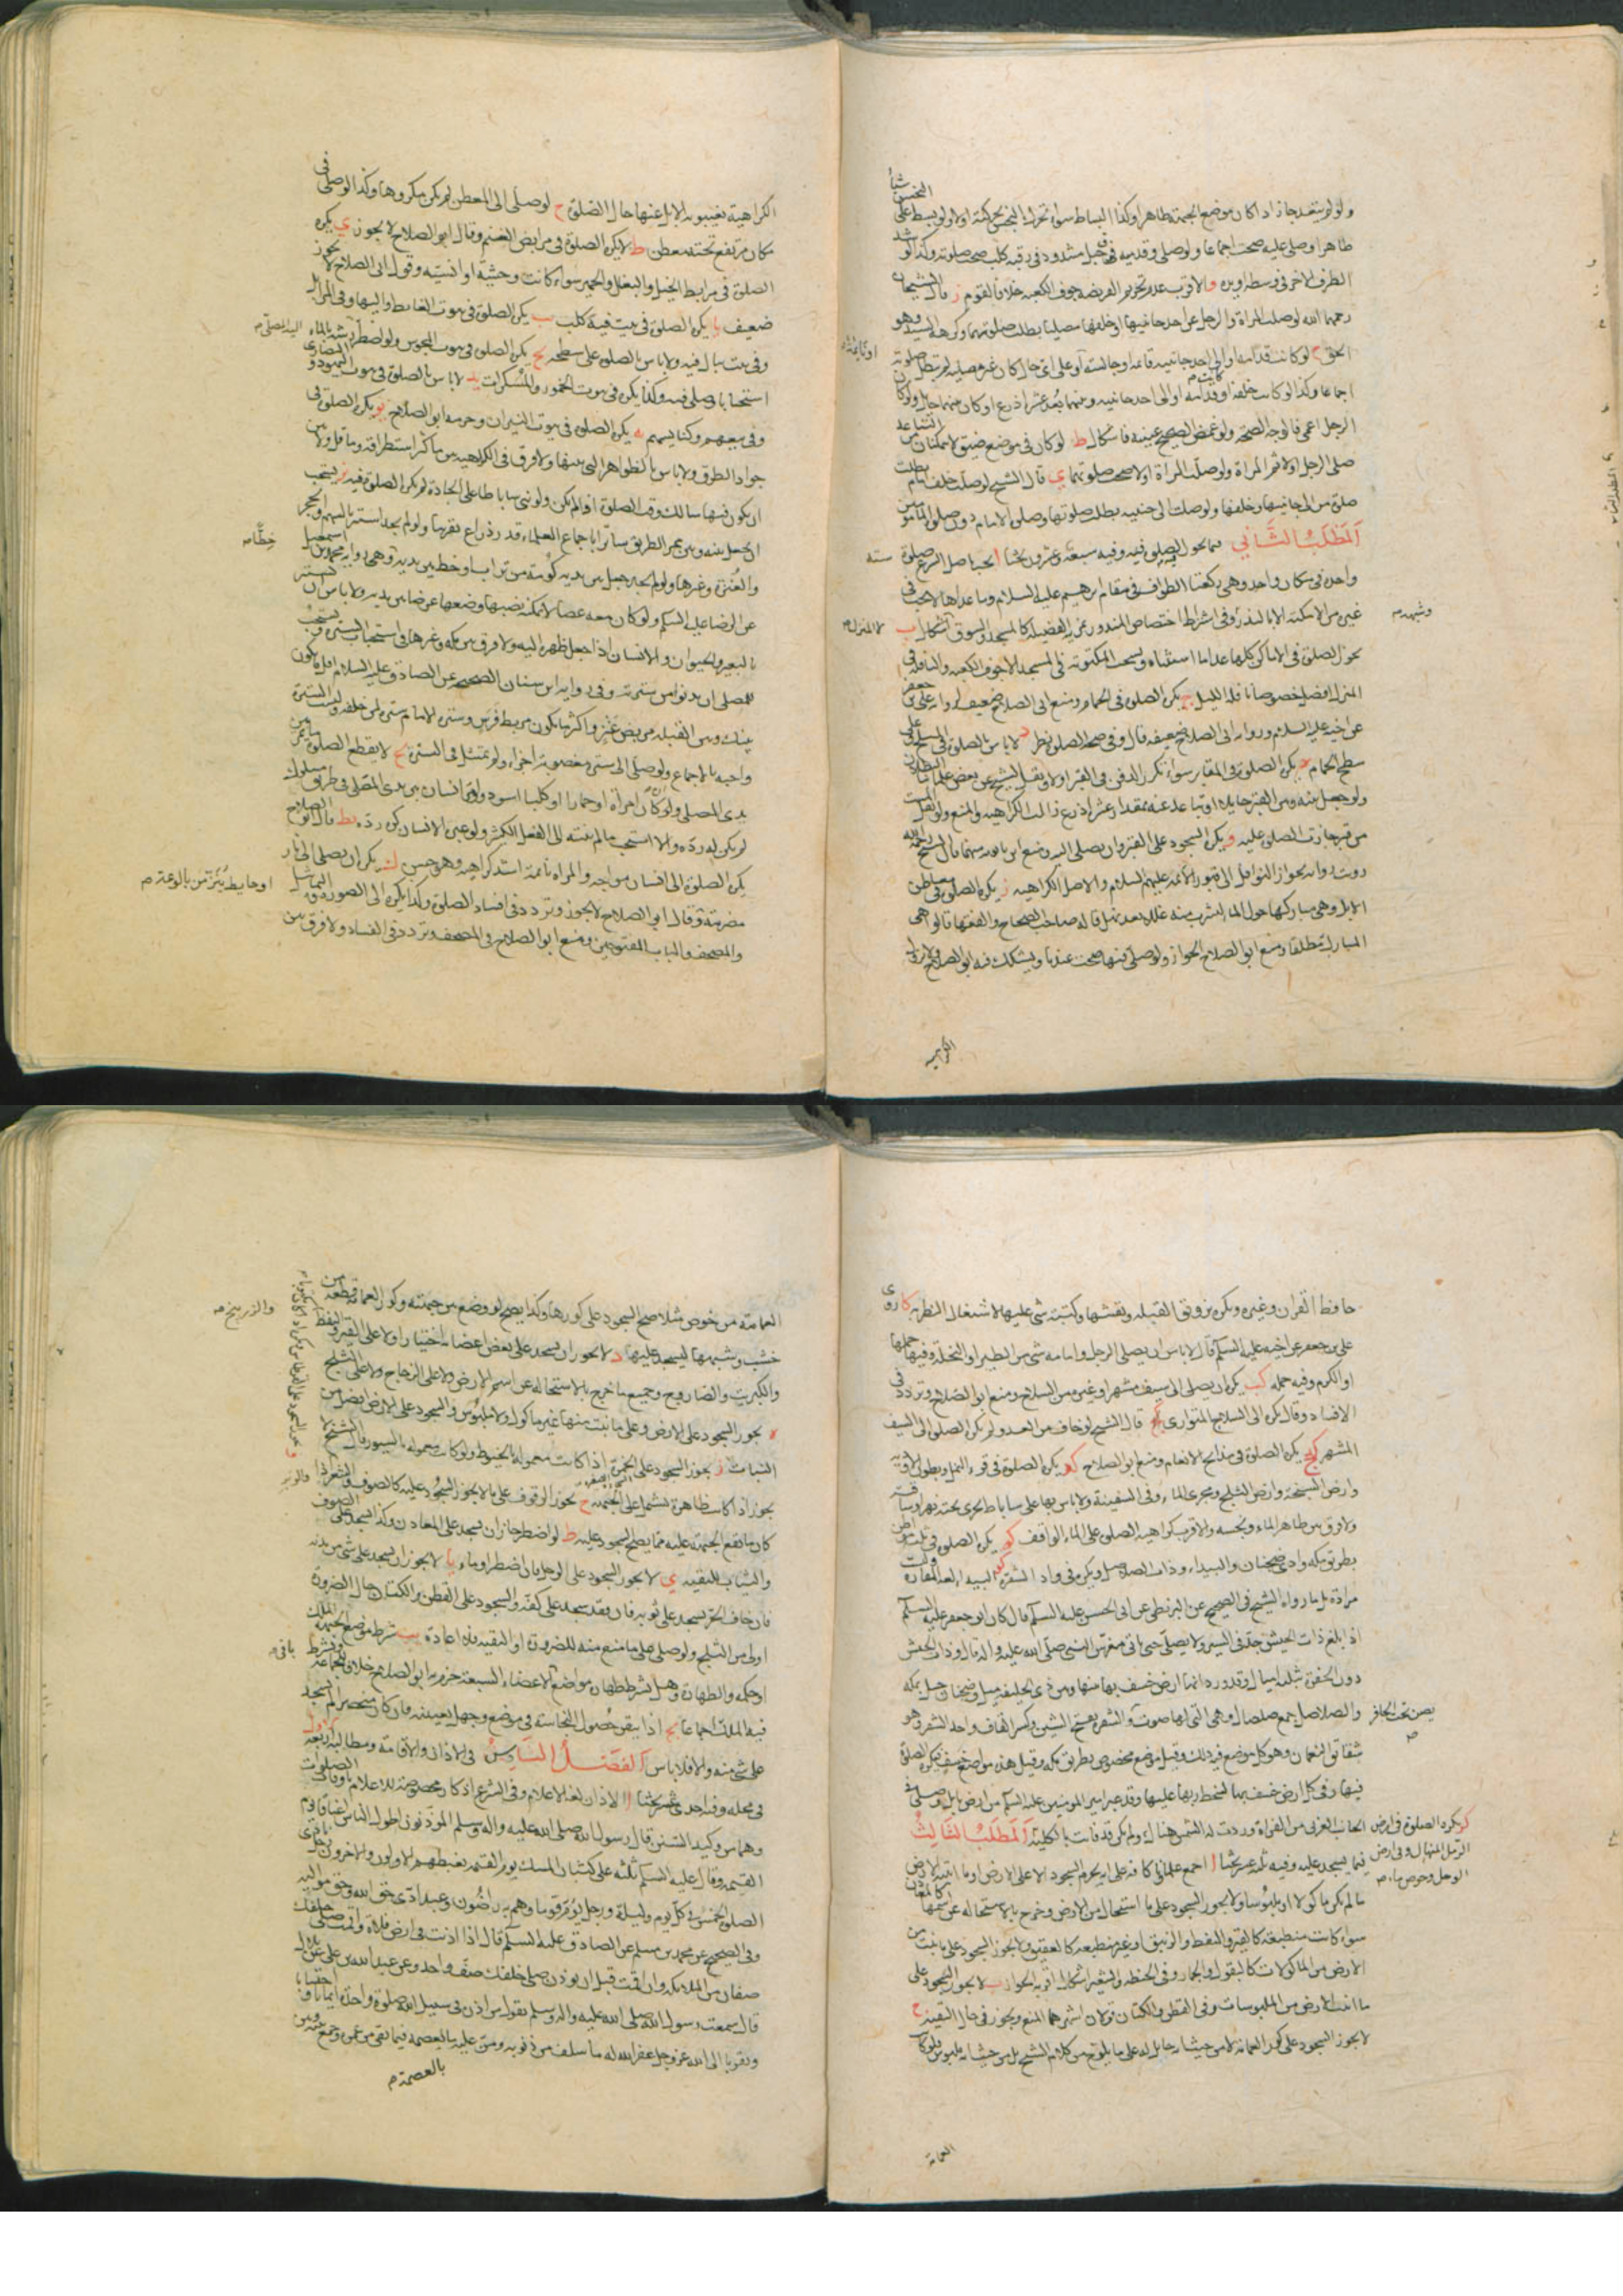 ولو لم يتعد جاز اذا كان موضع الجبهة طاهرا وكذا البساط سواء تحرك النجس بحركته او لا ولو بسط على النجس شيأ
طاهرا وصلى عليه صحت اجماعا ولو صلى وقدميه فوق حبل مشدود في رقبة كلب صحت صلوته وكذا لو شد
الطرف الاخر في وسطه او يده و الاقرب عدم تحريم الفريضة جوف الكعبة خلافا لقوم ز قال الشيخان
رحمهما الله لو صلت المراة والرجل على احد جانبيها او خلفها مصليا بطلت صلوتهما وكرهه السيد وهو
الحق ح لو كانت قدامه او الى احد جانبيه قائمة او جالسة او على اي حال كان غير مصلية لم تبطل صلوته
او نائمة
اجماعا وكذا لو كانت خلفه او قدامه او الى احد جانبيه وبينهما بعد عشر اذرع او كان بينهما حائل ولو كان
الرجل اعمى فالوجه الصحة ولو غمض الصحيح عينيه فاشكال ط لو كان في موضع ضيق لا يمكنان من التباعد
صلى الرجل اولا ثم المراة ولو صلت المراة اولا صحت صلوتهما ي قال الشيخ لو صلت خلف امام بطلت
صلوة من الى جانبيها ومن خلفها ولو صلت الى جنبيه بطلت صلوتها وصلوة الامام دون صلوة المامومين
المطلب الثاني فيما يجوز الصلوة فيه وفيه سبعة وعشرون بحثا ا يجب باصل الشرع صلوة
ستة
واحدة في مكان واحد وهي ركعتا الطواف في مقام ابرهيم عليه السلام وما عداها لا يجب في
غيره من الامكنة الا بالنذر وفي اشتراط اختصاص المنذور بمزيد الفضيلة كالمسجد والسوق اشكال ب
وشبهه م
لا المنزل م
تجوز الصلوة في الاماكن كلها عدا ما استثناه ويستحب المكتوبة في المسجد الا جوف الكعبة والنافلة في
المنزل افضل خصوصا نافلة الليل ج يكره الصلوة في الحمام ومنع ابي الصلاح ضعيف لرواية علي بن جعفر
عن اخيه عليه السلام ورواية ابي الصلاح ضعيفة قال وفي صحة الصلوة نظر د لا باس بالصلوة في المسلخ على
سطح الحمام ه يكره الصلوة في المقابر سواء تكرر الدفن في القبر او لا ونقل الشيخ عن بعض علمائنا البطلان
ولو جعل بينه وبين القبر حائلا او تباعد عنه بمقدار عشر اذرع زالت الكراهية والمنع ولو نقل الميت
من قبر جازت الصلوة عليه و يكره السجود على القبر وان يصلى اليه ومنع ابن بابويه منهما قال الشيخ رحمه الله
رويت رواية بجواز النوافل الى قبور الائمة عليهم السلام والاصل الكراهية ز يكره الصلوة في معاطن
الابل وهي مباركها حول الماء ليشرب منه عللا بعد نهل قاله صاحب الصحاح والفقهاء قالوا هي
المبارك مطلقا ومنع ابو الصلاح الجواز ولو صلى فيها صحت عندنا ويشكك فيه ابو الصلاح ولا تزول
الكراهية
الكراهية بغيبوبة الابل عنها حال الصلوة ح لو صلى الى المعطن لم يكن مكروها وكذا لو صلى في
مكان مرتفع تحته معطن ط لا يكره الصلوة في مرابض الغنم وقال ابو الصلاح لا يجوز ي يكره
الصلوة في مرابط الخيل والبغال والحمير سواء كانت وحشية او انسية وقول ابي الصلاح لا يجوز
ضعيف يا يكره الصلوة في بيت فيه كلب يب يكره الصلوة في بيوت الغايط واليها وفي المزابل
وفي بيت يبال فيه ولا باس بالصلوة على سطحه يج يكره الصلوة في بيوت المجوس ولو اضطر رشه بالماء
استحبابا وصلى فيه وكذا يكره في بيوت الخمور والمسكرات يد لا باس بالصلوة في بيوت اليهود والنصارى
وفي بيعهم وكنايسهم يه يكره الصلوة في بيوت النيران وحرمه ابو الصلاح يو يكره الصلوة في
جواد الطرق ولا باس بالظواهر التي بينها ولا فرق في الكراهية بين ما كثر استطراقه وما قل ولا بين
ان يكون فيها سالك وقت الصلوة او لم يكن ولو بنى ساباطا على الجادة لم يكره الصلوة فيه يز يستحب
ان يجعل بينه وبين ممر الطريق ساترا باجماع العلماء قدر ذراع تقريبا ولو لم يجد استتر بالسهم والحجر
خطا م
والعنزة وغيرها ولو لم يجد جعل بين يديه كومة من تراب او خط بين يديه وهي رواية محمد بن اسمعيل
عن الرضا عليه السلم ولو كان معه عصا لا يمكنه نصبها وضعها عرضا بين يديه ولا باس ان يستتر
بالبعير والحيوان والانسان اذا جعل ظهره اليه ولا فرق بين مكة وغيرها في استحباب السترة ويستحب
للمصلى ان يدنو من سترته وفي رواية ابن سنان الصحيحة عن الصادق عليه السلام اقل ما يكون
بينك وبين القبلة مربض عنز واكثر ما يكون مربط فرس وسترة الامام سترة لمن خلفه وليست السترة
واجبة بالاجماع ولو صلى الى سترة مغصوبة اجزاء ولم يمتثل في السترة يح لا يقطع الصلوة ما يمر بين
يدى المصلى ولو كان امراة او حمارا او كلبا اسود ولو مر انسان بين يدى المصلى في طريق مسلوك
لم يكن له رده والا استحب ما لم ينته الى الفعل الكثير ولو عبر الانسان كره رده يط قال ابو الصلاح
يكره الصلوة الى انسان مواجه والمراة نائمة اشد كراهية وهو حسن ك يكره ان يصلى الى نار
او حايط ينز من بالوعة م
مضرمة وقال ابو الصلاح لا يجوز وتردد في افساد الصلوة وكذا يكره الى الصور والتماثيل
والمصحف والباب المفتوحين ومنع ابو الصلاح في المصحف وتردد في الفساد ولا فرق بين
حافظ القران وغيره ويكره تزويق القبلة ونقشها وكتبة شي عليها لاشتغال النظر به كا روى
علي بن جعفر عن اخيه عليه السلم قال لا باس ان يصلى الرجل وامامه شي من الطير او النخلة وفيها حملها
او الكرم وفيه حمله كب يكره ان يصلى الى سيف مشهر او غيره من السلاح ومنع ابو الصلاح وتردد في
الافساد وقال يكره الى السلاح المتوارى كج قال الشيخ لو خاف من العدو لم يكره الصلوة الى السيف
المشهر كد يكره الصلوة في مذابح الانعام ومنع ابو الصلاح كه يكره الصلوة في قرى النمل وبطون الاودية
وارض السبخة وارض الثلج ومجرى الماء وفي السفينة ولا باس بها على ساباط يجرى تحته نهر او ساقية
ولا فرق بين طاهر الماء ونجسه والاقرب كراهية الصلوة على الماء الواقف كو يكره الصلوة في ثلث مواطن
بطريق مكة وادى ضجنان والبيداء وذات الصلاصل ويكره في وادى الشقرة البيداء لغة المفازة وليست
مرادة بل ما رواه الشيخ في الصحيح عن البزنطى عن ابى الحسن عليه السلم قال كان ابو جعفر عليه السلم
اذا بلغ ذات الجيش جد في السير ولا يصلى حتى ياتى معرس النبى صلى الله عليه واله قال وذات الجيش
دون الحفيرة بثلثة اميال وقد ورد انها ارض خسف بها منها وبين ذى الحليفة ميل وضجنان جبل بمكة
والصلاصل جمع صلصال وهي التى لها صوت والشقرة بفتح الشين وكسر القاف واحد الشقر وهو
شقائق النعمان وهو كل موضع فيه ذلك وقيل موضع مخصوص بطريق مكة وقيل هذه مواضع خسف فيكره الصلوة
فيها وفي كل ارض خسف بها لسخط ربها عليها وقد عبر امير المومنين عليه السلم من ارض بابل وصلى في
الجانب الغربى من الفراة وردت له الشمس هناك ولم يكن قد فاتت بالكلية المطلب الثالث
كز يكره الصلوة في ارض
الرمل المنهال وفي ارض
الوحل وحوض ماء م
فيما يسجد عليه وفيه ثلثة عشر بحثا ا اجمع علمائنا كافة على انه يحرم السجود الا على الارض او ما انبتته الارض
ما لم يكن ماكولا او ملبوسا ولا يجوز السجود على ما استحال من الارض وخرج بالاستحالة عن اسمها كالمعادن
سواء كانت منطبعة كالقير والنفط والزيبق او غير منطبعة كالعقيق ولا يجوز السجود على ما ينبت من
الارض من الماكولات كالبقول والخيار وفي الحنطة والشعير اشكال اقربه الجواز ب لا يجوز السجود على
ما انبتته الارض من الملبوسات وفي القطن والكتان قولان اشهرهما المنع ويجوز في حال التقية ج
لا يجوز السجود على كور العمامة لا من حيث انه حامل له على ما يلوح من كلام الشيخ بل من حيث انه ملبوس فلو كانت
العمامة
العمامة من خوص مثلا صح السجود على كورها وكذا يصح لو وضع بين جبهته وكور العمامة قطعة من
والزرنيخ م
خشب وشبهها ليسجد عليها د لا يجوز ان يسجد على بعض اعضائه اختيارا ولا على القير والنفط
والكبريت والصاروج وجميع ما خرج بالاستحالة عن اسم الارض ولا على الزجاج ولا على الثلج
ه يجوز السجود على الارض وعلى ما ينبت منها غير ماكول ولا ملبوس والسجود على الارض افضل من
النبات ز يجوز السجود على الخمرة اذا كانت معمولة بالخيوط ولو كانت معمولة بالسيور قال الشيخ لا
يجوز اذا كانت ظاهرة تشتمل على الجبهة ح يجوز الوقوف على ما لا يجوز السجود عليه كالصوف والشعر اذا
والوبر
كان ما تقع الجبهة عليه مما يصح السجود عليه ط لو اضطر جاز ان يسجد على المعادن وكذا يسجد على الصوف
والثياب للتقية ي لا يجوز السجود على الوحل فان اضطر اوماء يا لا يجوز ان يسجد على شي من بدنه
فان خاف الحر يسجد على ثوبه فان فقد سجد على كفه والسجود على القطن والكتان حال الضرورة
اولى من الثلج ولو صلى على ما منع منه للضرورة او التقية فلا اعادة يب يشترط موضع الجبهة الملك
او حكمه والطهارة وهل يشترط طهارة مواضع الاعضاء السبعة جزم به ابو الصلاح خلافا للجماعة ويشترط
باقى
فيه الملك اجماعا يج اذا تيقن حصول النجاسة في موضع وجهل تعيينه فان كان منحصرا لم يسجد
على شي منه والا فلا باس الفصل السادس في الاذان والاقامة ومطالبه اربعة
في محله وفيه احدى عشر بحثا ا الاذان لغة الاعلام وفي الشرع اذكار مخصوصة للاعلام باوقات الصلوات
وهما من وكيد السنن قال رسول الله صلى الله عليه واله وسلم المؤذنون اطول الناس اعناقا يوم
القيمة وقال عليه السلم ثلثة على كثبان المسك يوم القيمة يغبطهم الاولون والاخرون رجل نادى
الصلوة الخمس في كل يوم وليلة ورجل يؤم قوما وهم به راضون وعبد ادى حق الله وحق مواليه
وفي الصحيح عن محمد بن مسلم عن الصادق عليه السلم قال اذا اذنت في ارض فلاة واقمت صلى خلفك
صفان من الملئكة وان اقمت قبل ان تؤذن صلى خلفك صف واحد وعن عبد الله بن على عن بلال
قال سمعت رسول الله صلى الله عليه واله وسلم يقول من اذن في سبيل الله صلوة واحدة ايمانا واحتسابا
وتقربا الى الله عز وجل غفر الله له ما سلف من ذنوبه ومن عليه بالعصمة فيما بقى من عمره وجمع بينه وبين
بالعصمة م